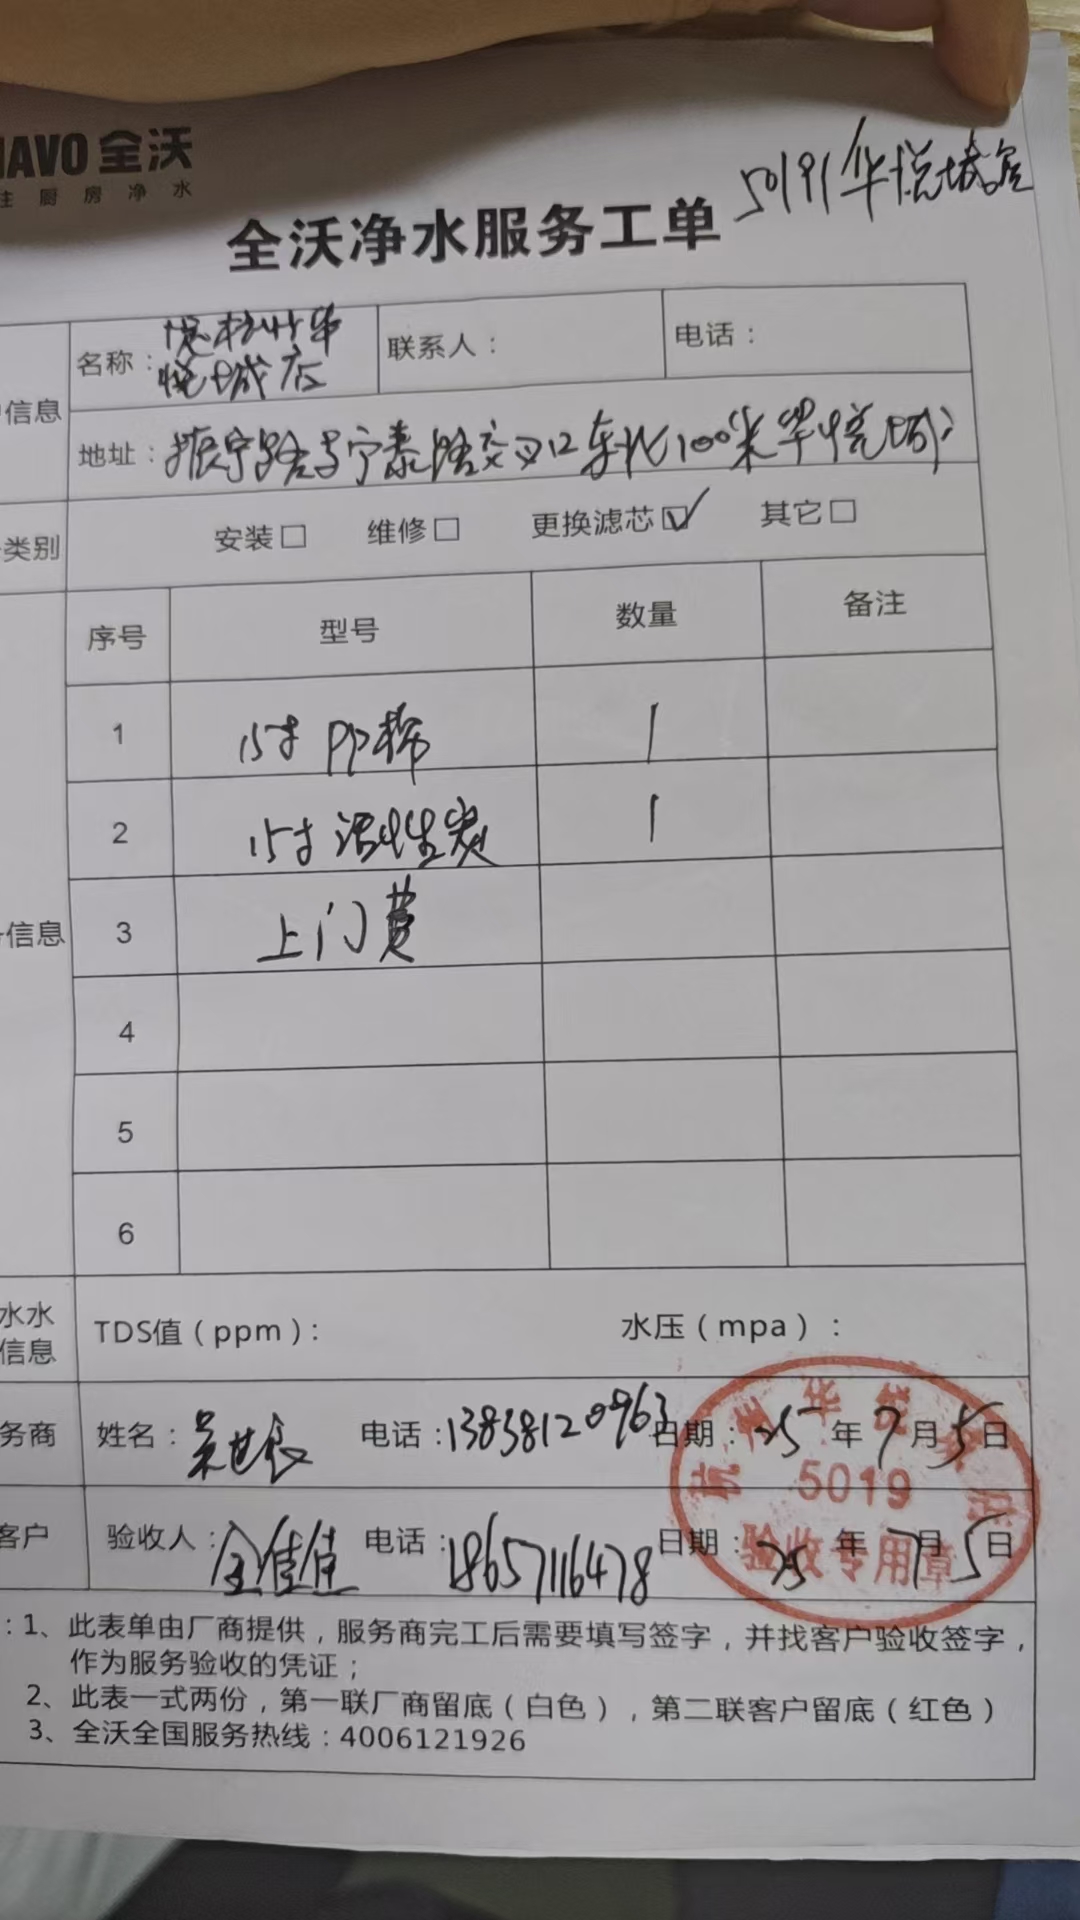 NAVO 全沃
住厨房净水
全沃净水服务工单
50191华悦城店
名称：
悦城店
联系人：
电话：
信息
地址：振宁路与宁泰路交叉口东北100米华悦城
类别
安装□ 维修□ 更换滤芯☑ 其它□
序号 型号 数量 备注
1 15寸PP棉 1
2 15寸活性炭 1
信息
3 上门费
4
5
6
水水
信息
TDS值（ppm）： 水压（mpa）：
务商 姓名：吴世良 电话：13838120963 日期：25年7月5日
客户 验收人：全佳佳 电话：18657116478 日期：25年7月5日
杭 华
5019
验收专用章
：1、此表单由厂商提供，服务商完工后需要填写签字，并找客户验收签字，
作为服务验收的凭证；
2、此表一式两份，第一联厂商留底（白色），第二联客户留底（红色）
3、全沃全国服务热线：4006121926